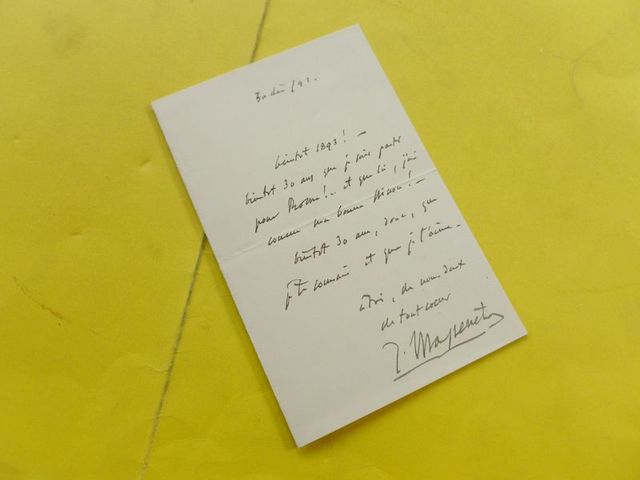 30 déc / 92.
bientôt 1893! —
bientôt 30 ans que je suis parti
pour Rome!.. et que là, j'ai
connu ma bonne !—
bientôt 30 ans, donc, que
je te connais et que je t'aime.
à toi, de nous deux
de tout cœur
J. Massenet